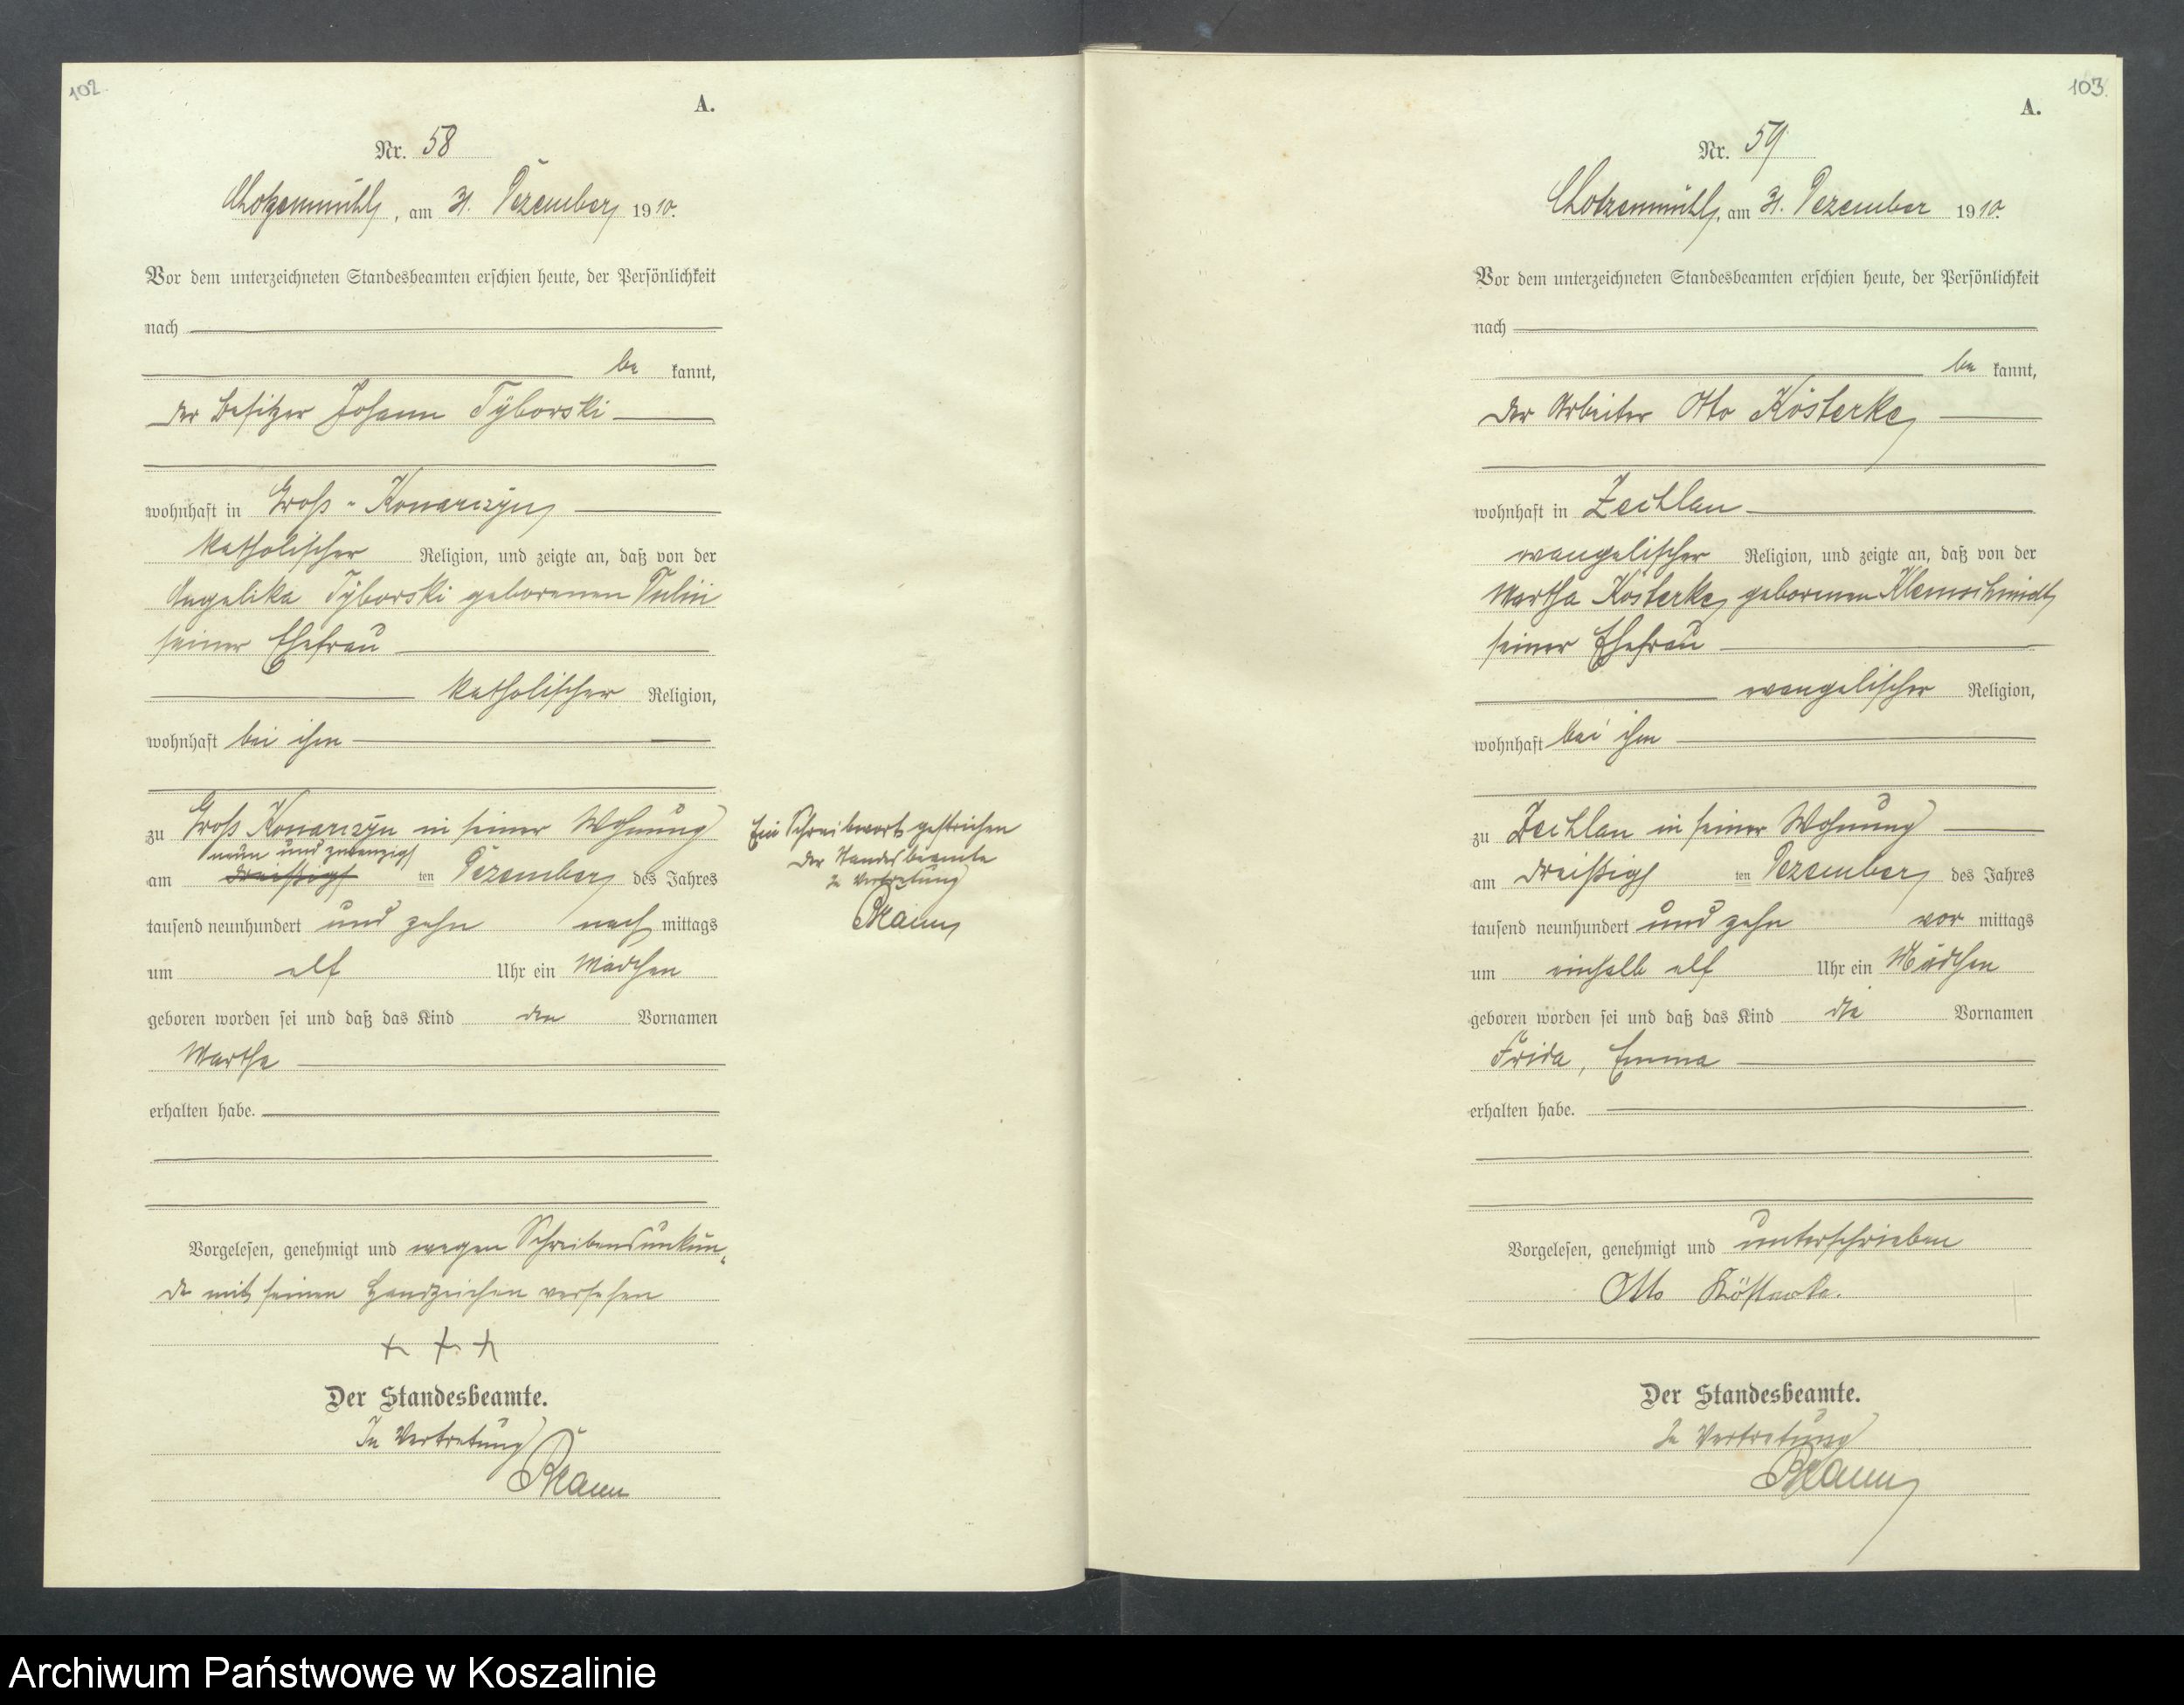 102.
A.
Nr. 58
Chotzenmühl, am 31. Dezember 1910.
Vor dem unterzeichneten Standesbeamten erschien heute, der Persönlichkeit
nach
be kannt,
der Besitzer Johann Tyborski
wohnhaft in Groß-Konarczyn
katholischer Religion, und zeigte an, daß von der
Angelika Tyborski geborenen
seiner Ehefrau
katholischer Religion,
wohnhaft bei ihm
zu Groß Konarczyn in seiner Wohnung
neun und zwanzigs
am dreißigs ten Dezember des Jahres
tausend neunhundert und zehn nach mittags
um elf Uhr ein Mädchen
geboren worden sei und daß das Kind den Vornamen
Martha
erhalten habe.
Vorgelesen, genehmigt und wegen Schreibensunkun-
de mit seinen Handzeichen versehen
+ + +
Der Standesbeamte.
In Vertretung
Ein Schreibwort gestrichen
Der Standesbeamte
In Vertretung
103.
A.
Nr. 59
Chotzenmühl, am 31. Dezember 1910.
Vor dem unterzeichneten Standesbeamten erschien heute, der Persönlichkeit
nach
be kannt,
der Arbeiter Otto Kösterke
wohnhaft in Zechlau
evangelischer Religion, und zeigte an, daß von der
Martha Kösterke geborenen Klemschmidt
seiner Ehefrau
evangelischer Religion,
wohnhaft bei ihm
zu Zechlau in seiner Wohnung
am dreißigs ten Dezember des Jahres
tausend neunhundert und zehn vor mittags
um einhalb elf Uhr ein Mädchen
geboren worden sei und daß das Kind die Vornamen
Frida, Emma
erhalten habe.
Vorgelesen, genehmigt und unterschrieben
Otto Kösterke.
Der Standesbeamte.
In Vertretung
Archiwum Państwowe w Koszalinie